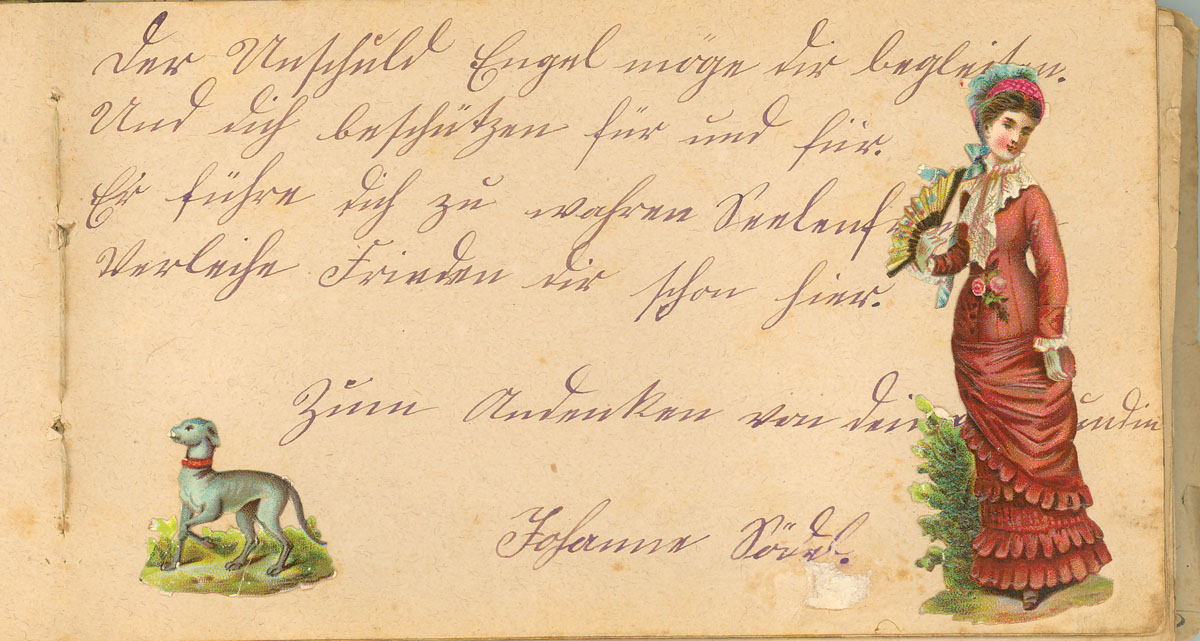 Der Unschuld Engel möge dir begleiten.
Und dich beschützen für und für.
Er führe dich zu wahren
Verleihe Frieden dir schon hier.
Zum Andenken von
Johanne